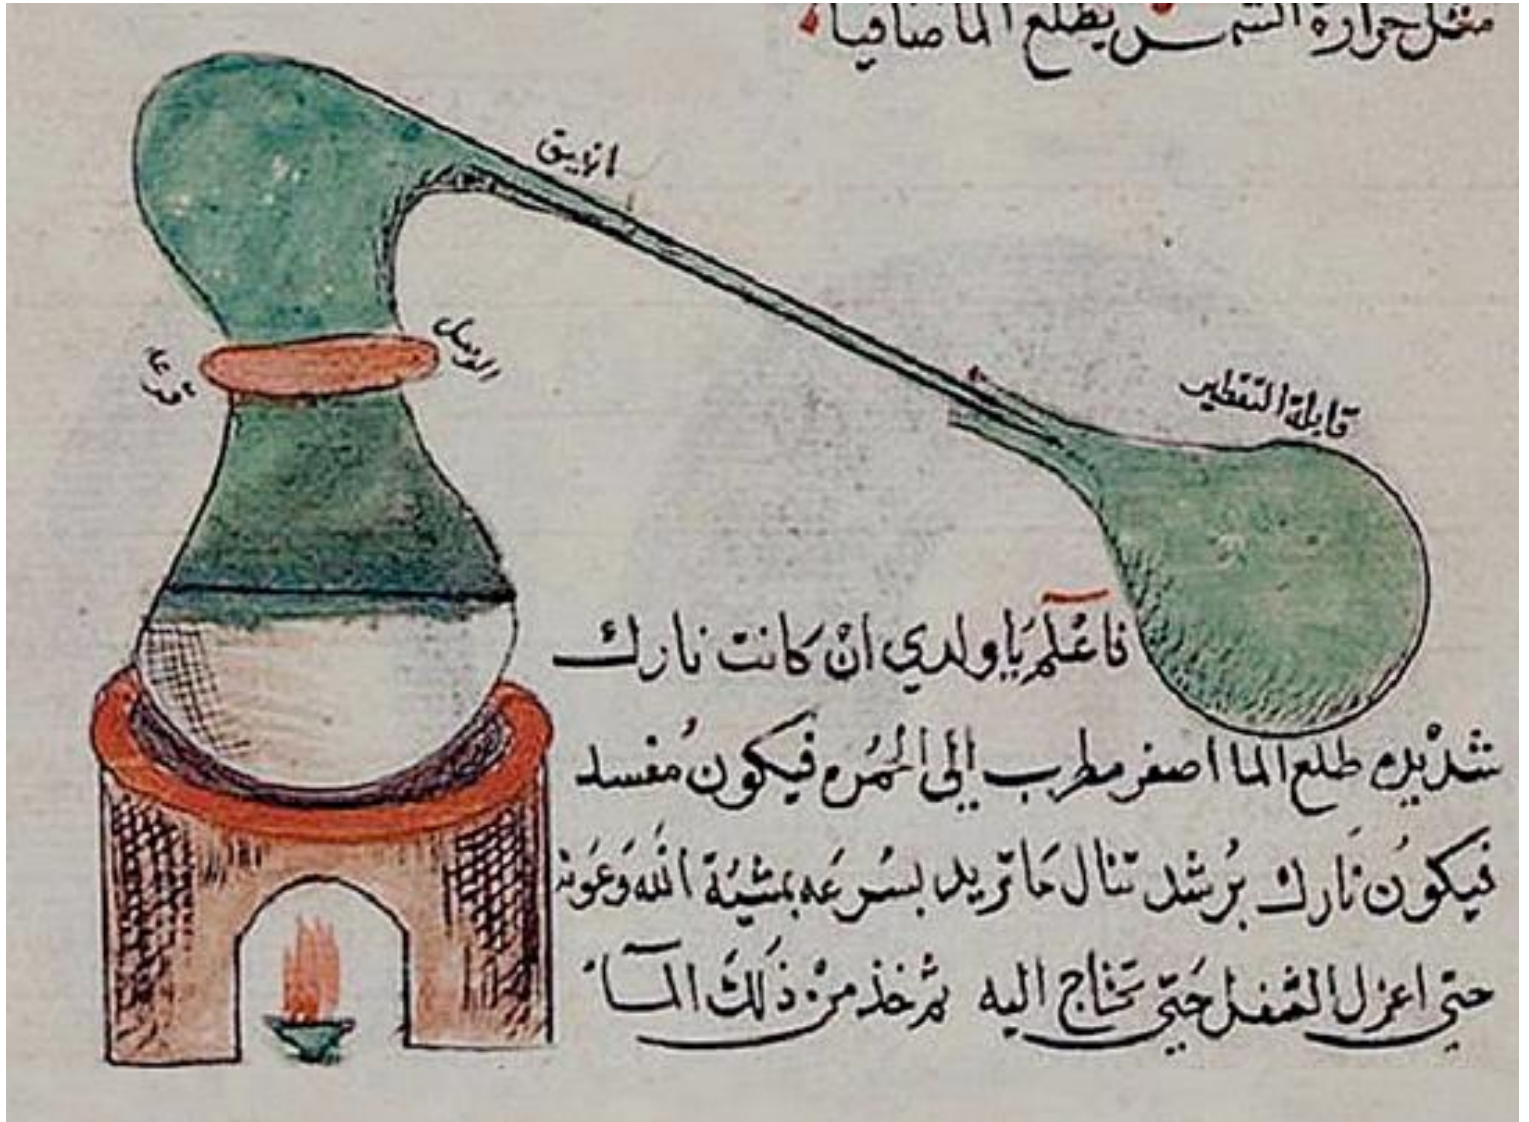 مثل حرارة الشمس يطلع الما صافيا
انبيق
الوصل
قرعة
قابلة التقطير
فاعْلم يَا ولدي انْ كانت نارك
شديده طلع الما اصفر مطرب الى الحُمره فيكون مُفسد
فيكونُ نَارك بُرشد تنال مَا تريد بسُرعَه بمشيّة الله وَعَونه
حتى اعزل الثفل حَتى تحتاج اليه ثم خذ منْ ذَلكَ المآء